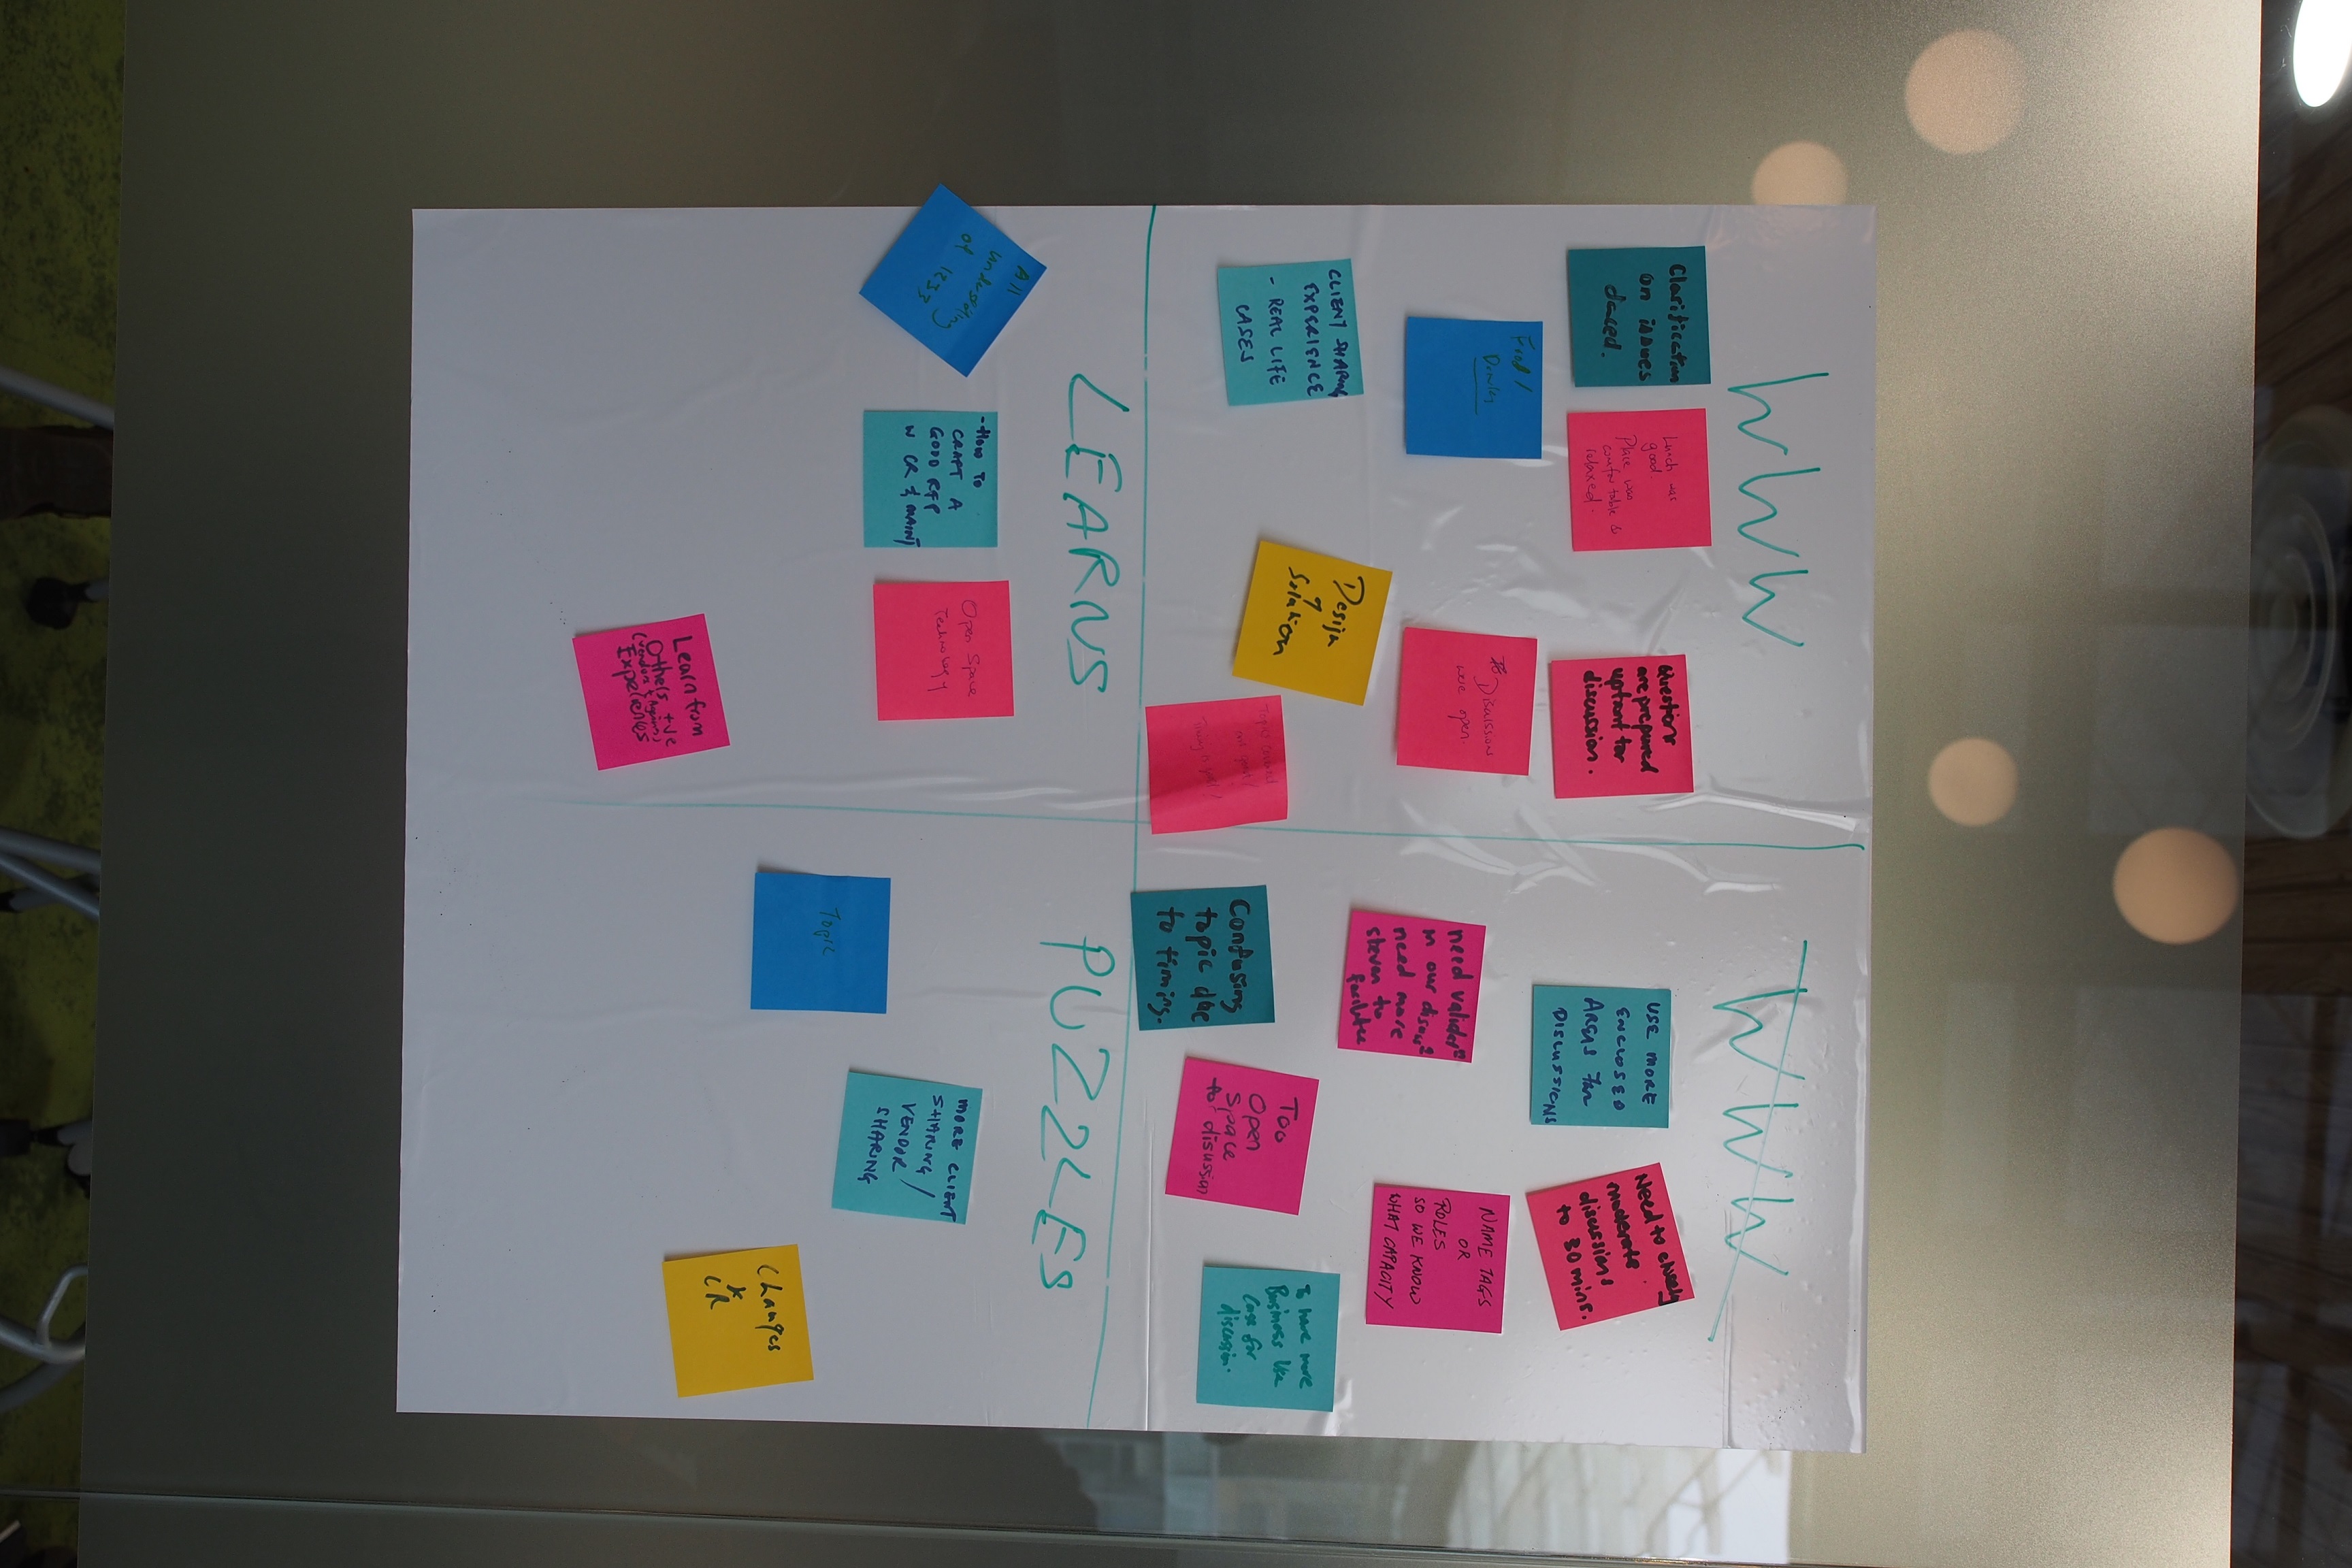 WWW
Clarification
on issues
faced.
Lunch was
good.
Place was
comfortable &
relaxed.
Questions
are prepared
upfront for
discussion.
Food/
Drinks
Discussions
were open.
CLIENT SHARING
EXPERIENCE
- REAL LIFE
CASES
Design
of
Solution
Topics covered
are good!
Timing is good!
WWW
USE MORE
ENCLOSED
AREAS FOR
DISCUSSIONS
Need to closely
moderate
discussions
to 30 mins.
need
in our
need more
steven to
facilitate
NAME TAGS
OR
ROLES
SO WE KNOW
WHAT CAPACITY
Confusing
topic due
to timing.
Too
Open
Space
for disussion
To have more
Business Use
Case for
discussion.
LEARNS
All
of 1233
- HOW TO
CRAFT A
GOOD RFP
W CR & MAINT
Open Space
Technology
Learn from
Others +ve
Experiences
PUZZLES
MORE CLIENT
SHARING /
VENDOR
SHARING
Topic
Changes
&
CR